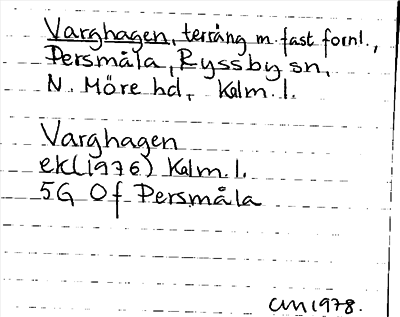 Varghagen, terräng m. fast fornl.,
Persmåla, Ryssby sn,
N. Möre hd, Kalm. l.
Varghagen
ekl(1976) Kalm. l.
5G 0f Persmåla
CM 1978.